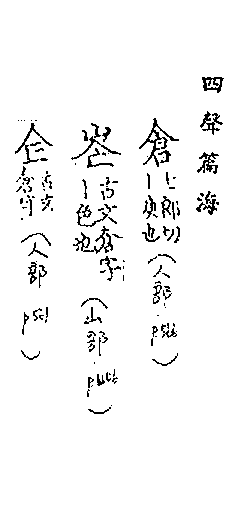 四聲篇海
倉 七郎切 ｜庾也 (人部
古文倉字 ｜色也 (山部
仺 古文倉字 (人部